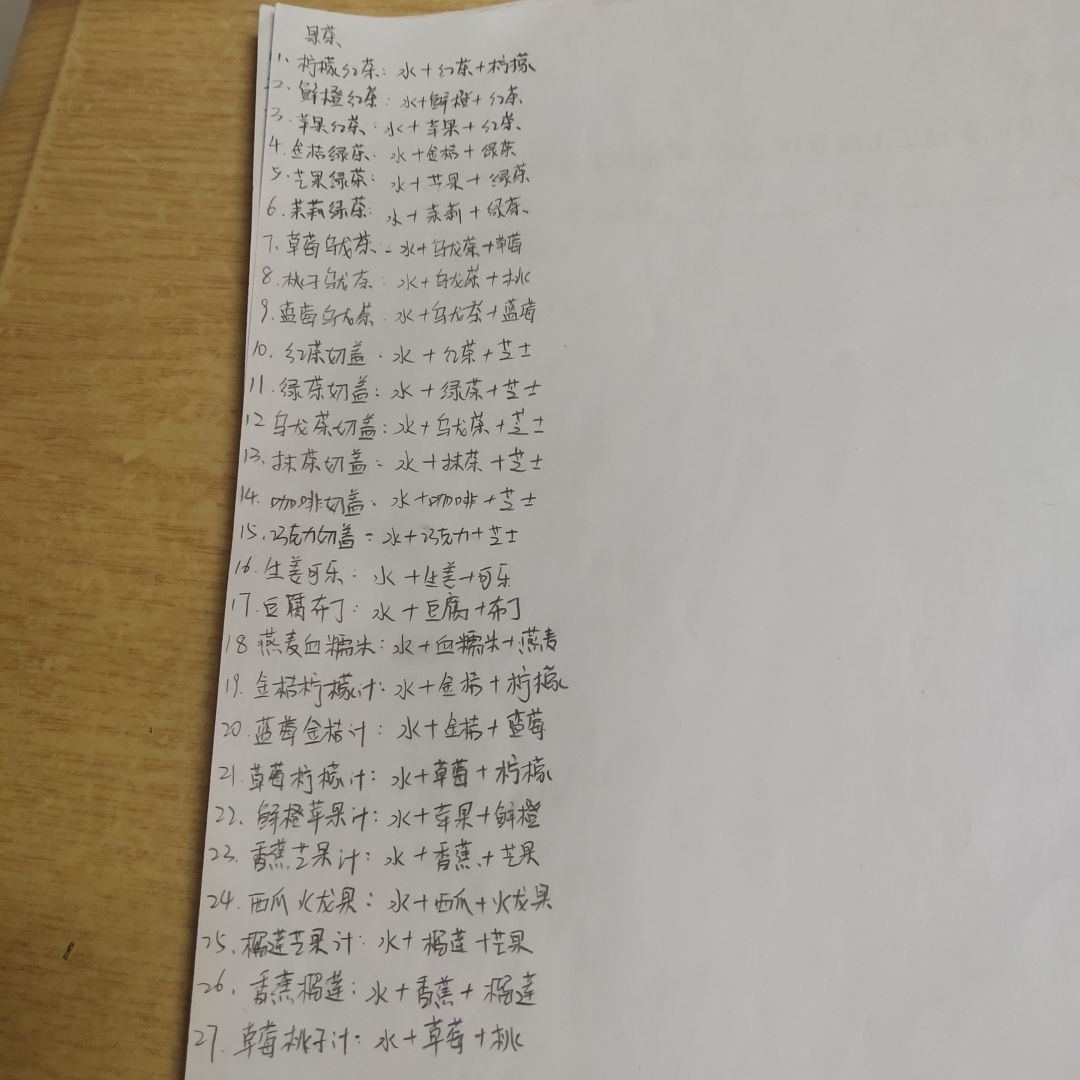 果茶
1、柠檬红茶：水+红茶+柠檬
2、鲜橙红茶：水+鲜橙+红茶
3、苹果红茶：水+苹果+红茶
4、金桔绿茶：水+金桔+绿茶
5、芒果绿茶：水+芒果+绿茶
6、茉莉绿茶：水+茉莉+绿茶
7、草莓乌龙茶：水+乌龙茶+草莓
8、桃子乌龙茶：水+乌龙茶+桃
9、蓝莓乌龙茶：水+乌龙茶+蓝莓
10、红茶奶盖：水+红茶+芝士
11、绿茶奶盖：水+绿茶+芝士
12 乌龙茶奶盖：水+乌龙茶+芝士
13、抹茶奶盖：水+抹茶+芝士
14、咖啡奶盖：水+咖啡+芝士
15、巧克力奶盖：水+巧克力+芝士
16、生姜可乐：水+生姜+可乐
17、豆腐布丁：水+豆腐+布丁
18 燕麦血糯米：水+血糯米+燕麦
19、金桔柠檬汁：水+金桔+柠檬
20、蓝莓金桔汁：水+金桔+蓝莓
21、草莓柠檬汁：水+草莓+柠檬
22、鲜橙苹果汁：水+苹果+鲜橙
23、香蕉芒果汁：水+香蕉+芒果
24、西瓜火龙果：水+西瓜+火龙果
25、榴莲芒果汁：水+榴莲+芒果
26、香蕉榴莲：水+香蕉+榴莲
27、草莓桃子汁：水+草莓+桃